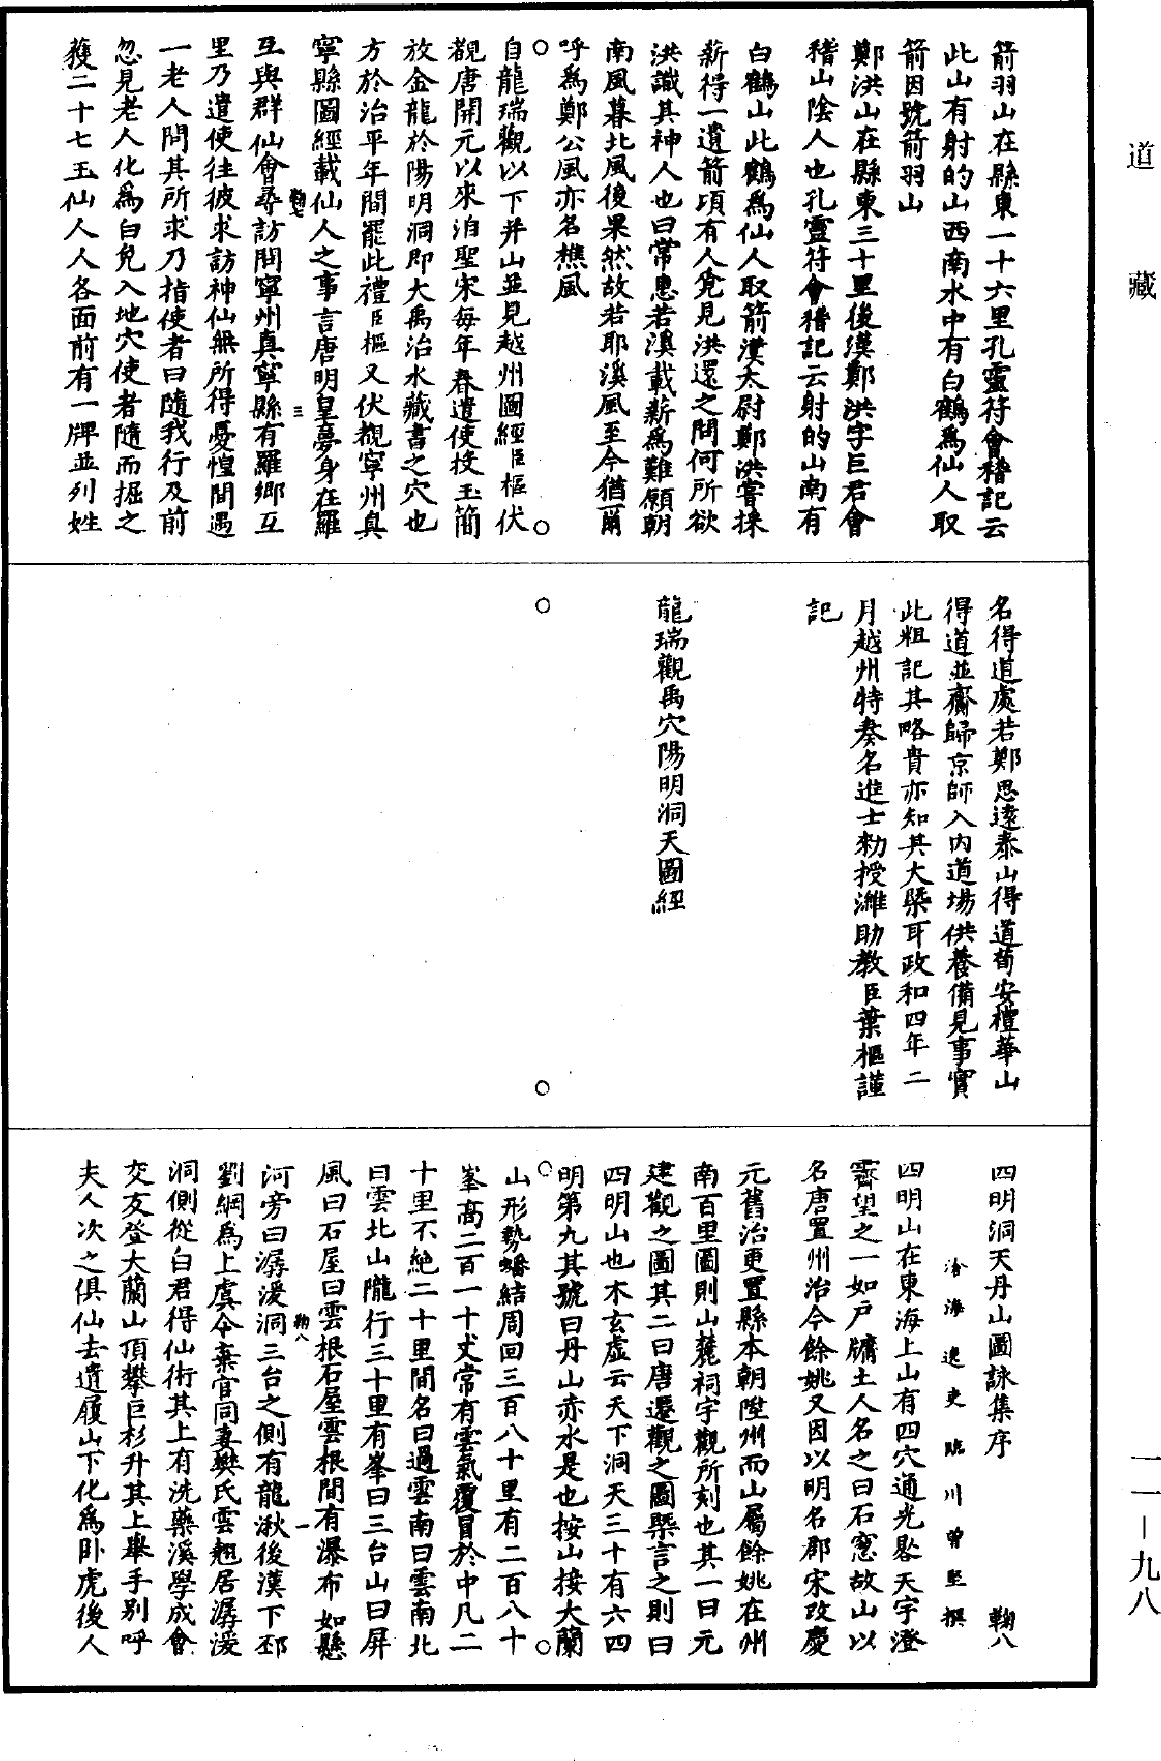 道藏
箭羽山在縣東一十六里孔靈符會稽記云
此山有射的山西南水中有白鶴為仙人取
箭因號箭羽山
鄭洪山在縣東三十里後漢鄭洪字巨君會
稽山陰人也孔靈符會稽記云射的山南有
白鶴山此鶴為仙人取箭漢太尉鄭洪嘗採
薪得一遺箭頃有人覓見洪還之問何所欲
洪識其神人也曰常患若溪載薪為難願朝
南風暮北風後果然故若耶溪風至今猶爾
呼為鄭公風亦名樵風
自龍瑞觀以下并山並見越州圖經臣樞伏
覩唐開元以來洎聖宋每年春遣使投玉簡
放金龍於陽明洞即大禹治水藏書之穴也
方於治平年間罷此禮臣樞又伏覩寧州真
寧縣圖經載仙人之事言唐明皇夢身在羅
鞠七
三
互與群仙會尋訪問寧州真寧縣有羅鄉互
里乃遣使往彼求訪神仙無所得憂惶間遇
一老人問其所求乃指使者曰隨我行及前
忽見老人化為白兔入地穴使者隨而掘之
獲二十七玉仙人人各面前有一牌並列姓
名得道處若鄭思遠泰山得道荀安禮華山
得道並齎歸京師入內道場供養備見事實
此粗記其略貴亦知其大槩耳政和四年二
月越州特奏名進士勑授濰助教臣葉樞謹
記
龍瑞觀禹穴陽明洞天圖經
四明洞天丹山圖詠集序
鞠八
滄海逸吏臨川曾堅撰
四明山在東海上山有四穴通光畧天宇澄
霽望之一如戶牖土人名之曰石窓故山以
名唐置州治今餘姚又因以明名郡宋改慶
元舊治更置縣本朝陞州而山屬餘姚在州
南百里圖則山麓祠宇觀所刻也其一曰元
建觀之圖其二曰唐遷觀之圖槩言之則曰
四明山也木玄虛云天下洞天三十有六四
明第九其號曰丹山赤水是也按山接大蘭
山形勢蟠結周回三百八十里有二百八十
峯高二百一十丈常有雲氣覆冒於中凡二
十里不絕二十里間名曰過雲南曰雲南北
曰雲北山隴行三十里有峯曰三台山曰屏
風曰石屋曰雲根石屋雲根間有瀑布如懸
鞠八
一
河旁曰潺湲洞三台之側有龍湫後漢下邳
劉綱為上虞令棄官同妻樊氏雲翹居潺湲
洞側從白君得仙術其上有洗藥溪學成會
交友登大蘭山頂攀巨杉升其上舉手別呼
夫人次之俱仙去遺履山下化為臥虎後人
一一—九八